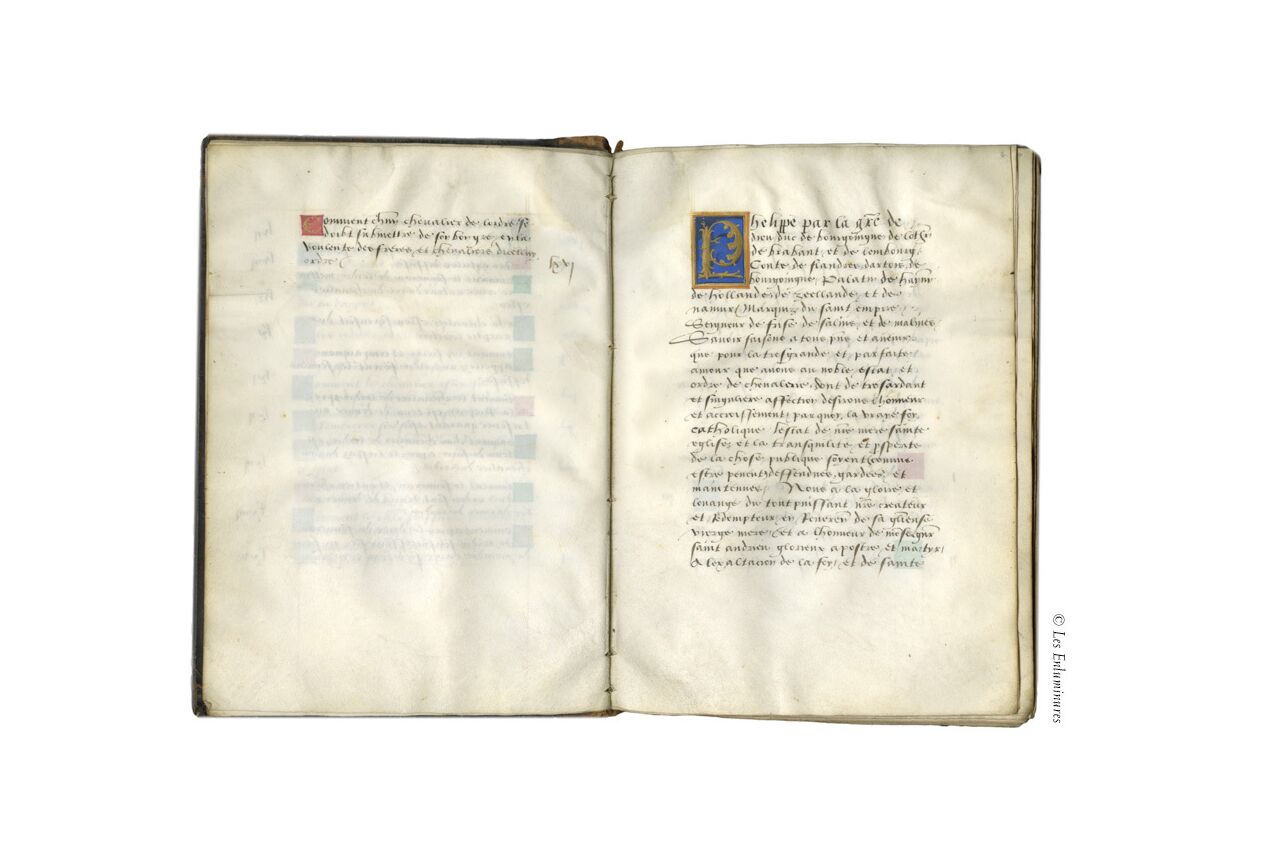 Comment chũn chevalier de lordre se
doibt submettre de son
voulente des freres et chevaliers
ordre
lxxj
Phelippe par la grẽ de
dieu duc de bourgoingne de loth
de brabant et de lembourg
Conte de flandres dartois de
bourgoingne Palatin de hayñ
de hollande de zeellande et de
namur Marquiz du saint empire
Seigneur de frise de salins et de malines
Savoir faisons a tous pñs et avenir
que pour la tresgrande et parfaite
amour que avons au noble estat et
ordre de chevalerie dont de tresardant
et singuliere affection desirons lhonneur
et accroissement par quoy la vraye foy
catholique lestat de nrẽ mere sainte
eglise et la transquilite et psperite
de la chose publique soyent comme
estre peuent deffendues gardees et
maintenues Nous a la gloire et
louange du tout puissant nrẽ createur
et Redempteur en Reveren de sa glieuse
vierge mere et a lhonneur de monseignr
saint andrieu glorieux apostre et martyr
A lexaltacion de la foy et de sainte
© Les Enluminures